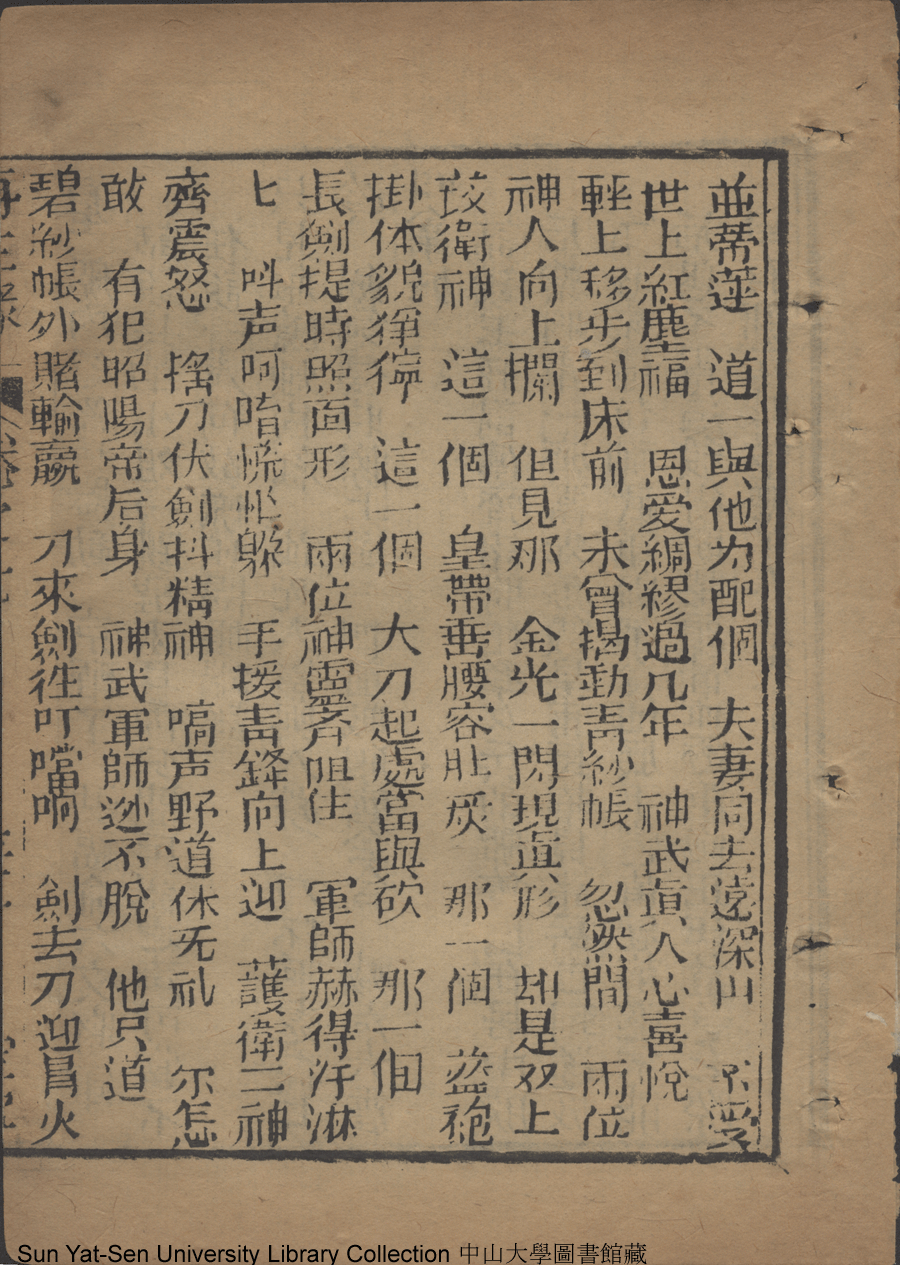 並蒂蓮　道一與他为配個　夫妻同去遠深山　不愛
世上紅塵福　恩爱綢繆過几年　神武真人心喜悅
輕上移步到床前　未曾揭動青紗帳　忽然間　兩位
神人向上攔　但見那　金光一閃現真形　却是双上
護衛神　這一個　皇帶垂腰容壮　那一個　盔袍
掛体貌狰獰　這一個　大刀起處當與砍　那一個
長劍提時照面形　兩位神靈齐阻住　軍師赫得汗淋
匕　呌声呵唷慌忙躲　手援青鋒向上迎　護衛二神
齊震怒　搖刀伏劍抖精神　嗃声野道休无礼　尔怎
敢　有犯昭陽帝后身　神武軍師迯不脫　他只道
碧紗帳外賭輸贏　刀來劍徃叮噹响　劍去刀迎冒火
再生緣
Sun Yat-Sen University Library Collection 中山大學圖書館藏